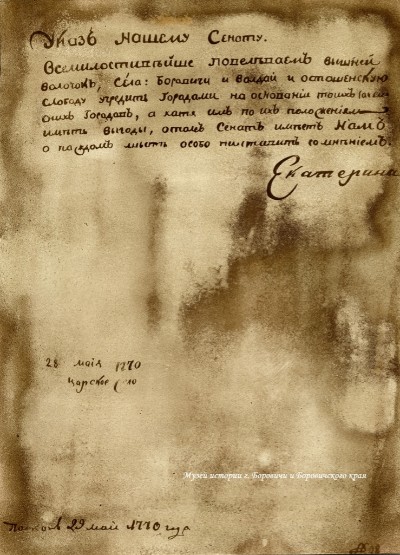 Указъ нашему Сенату.
Всемилостивѣйше повелѣваемъ вышней
волочокъ, Сѣла: Боровичи и Валдай и осташенскую
слободу учредить Городами на основании
Городовъ, а какия имъ по ихъ положениямъ
имѣть выгоды, о томъ Сенатъ имѣетъ Намъ
о каждомъ мѣстѣ особо со мнѣниемъ.
Екатерина
28 маія 1770
Царское Село
Музей истории г. Боровичи и Боровичского края
29 май 1770 года